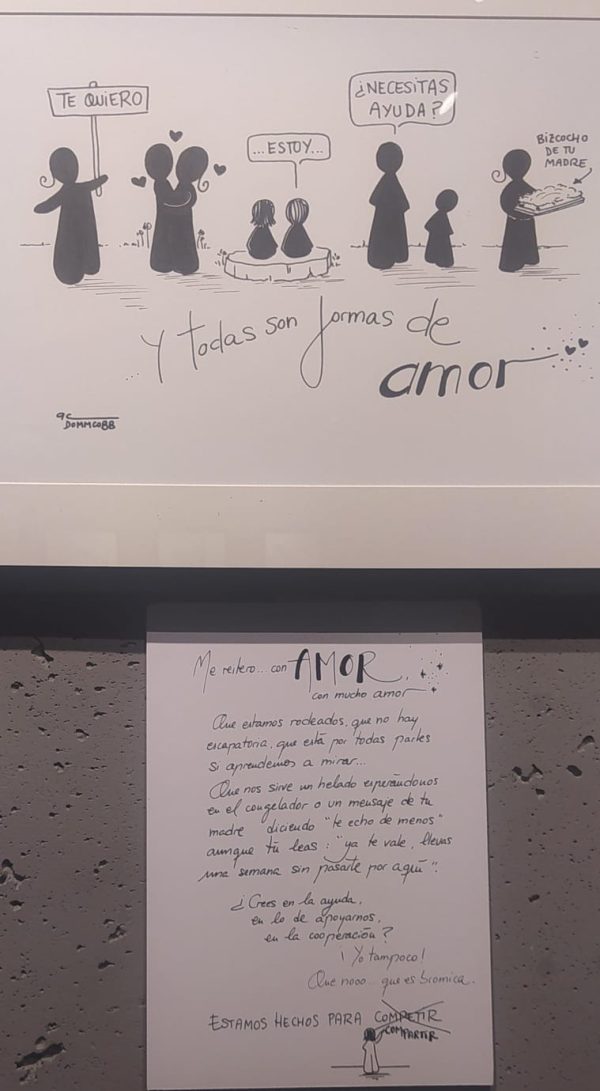 TE QUIERO
...ESTOY...
¿NECESITAS
AYUDA?
BIZCOCHO
DE TU
MADRE
Y todas son formas de
amor
DOMMCO88
Me reitero... con AMOR,
con mucho amor
Que estamos rodeados, que no hay
escapatoria, que está por todas partes
si aprendemos a mirar...
Que nos sirve un helado esperándonos
en el congelador o un mensaje de tu
madre diciendo "te echo de menos"
aunque tú leas: "ya te vale, llevas
una semana sin pasarte por aquí".
¿Crees en la ayuda,
en lo de apoyarnos,
en la cooperación?
¡Yo tampoco!
Que nooo... que es bromica.
ESTAMOS HECHOS PARA COMPETIR
COMPARTIR